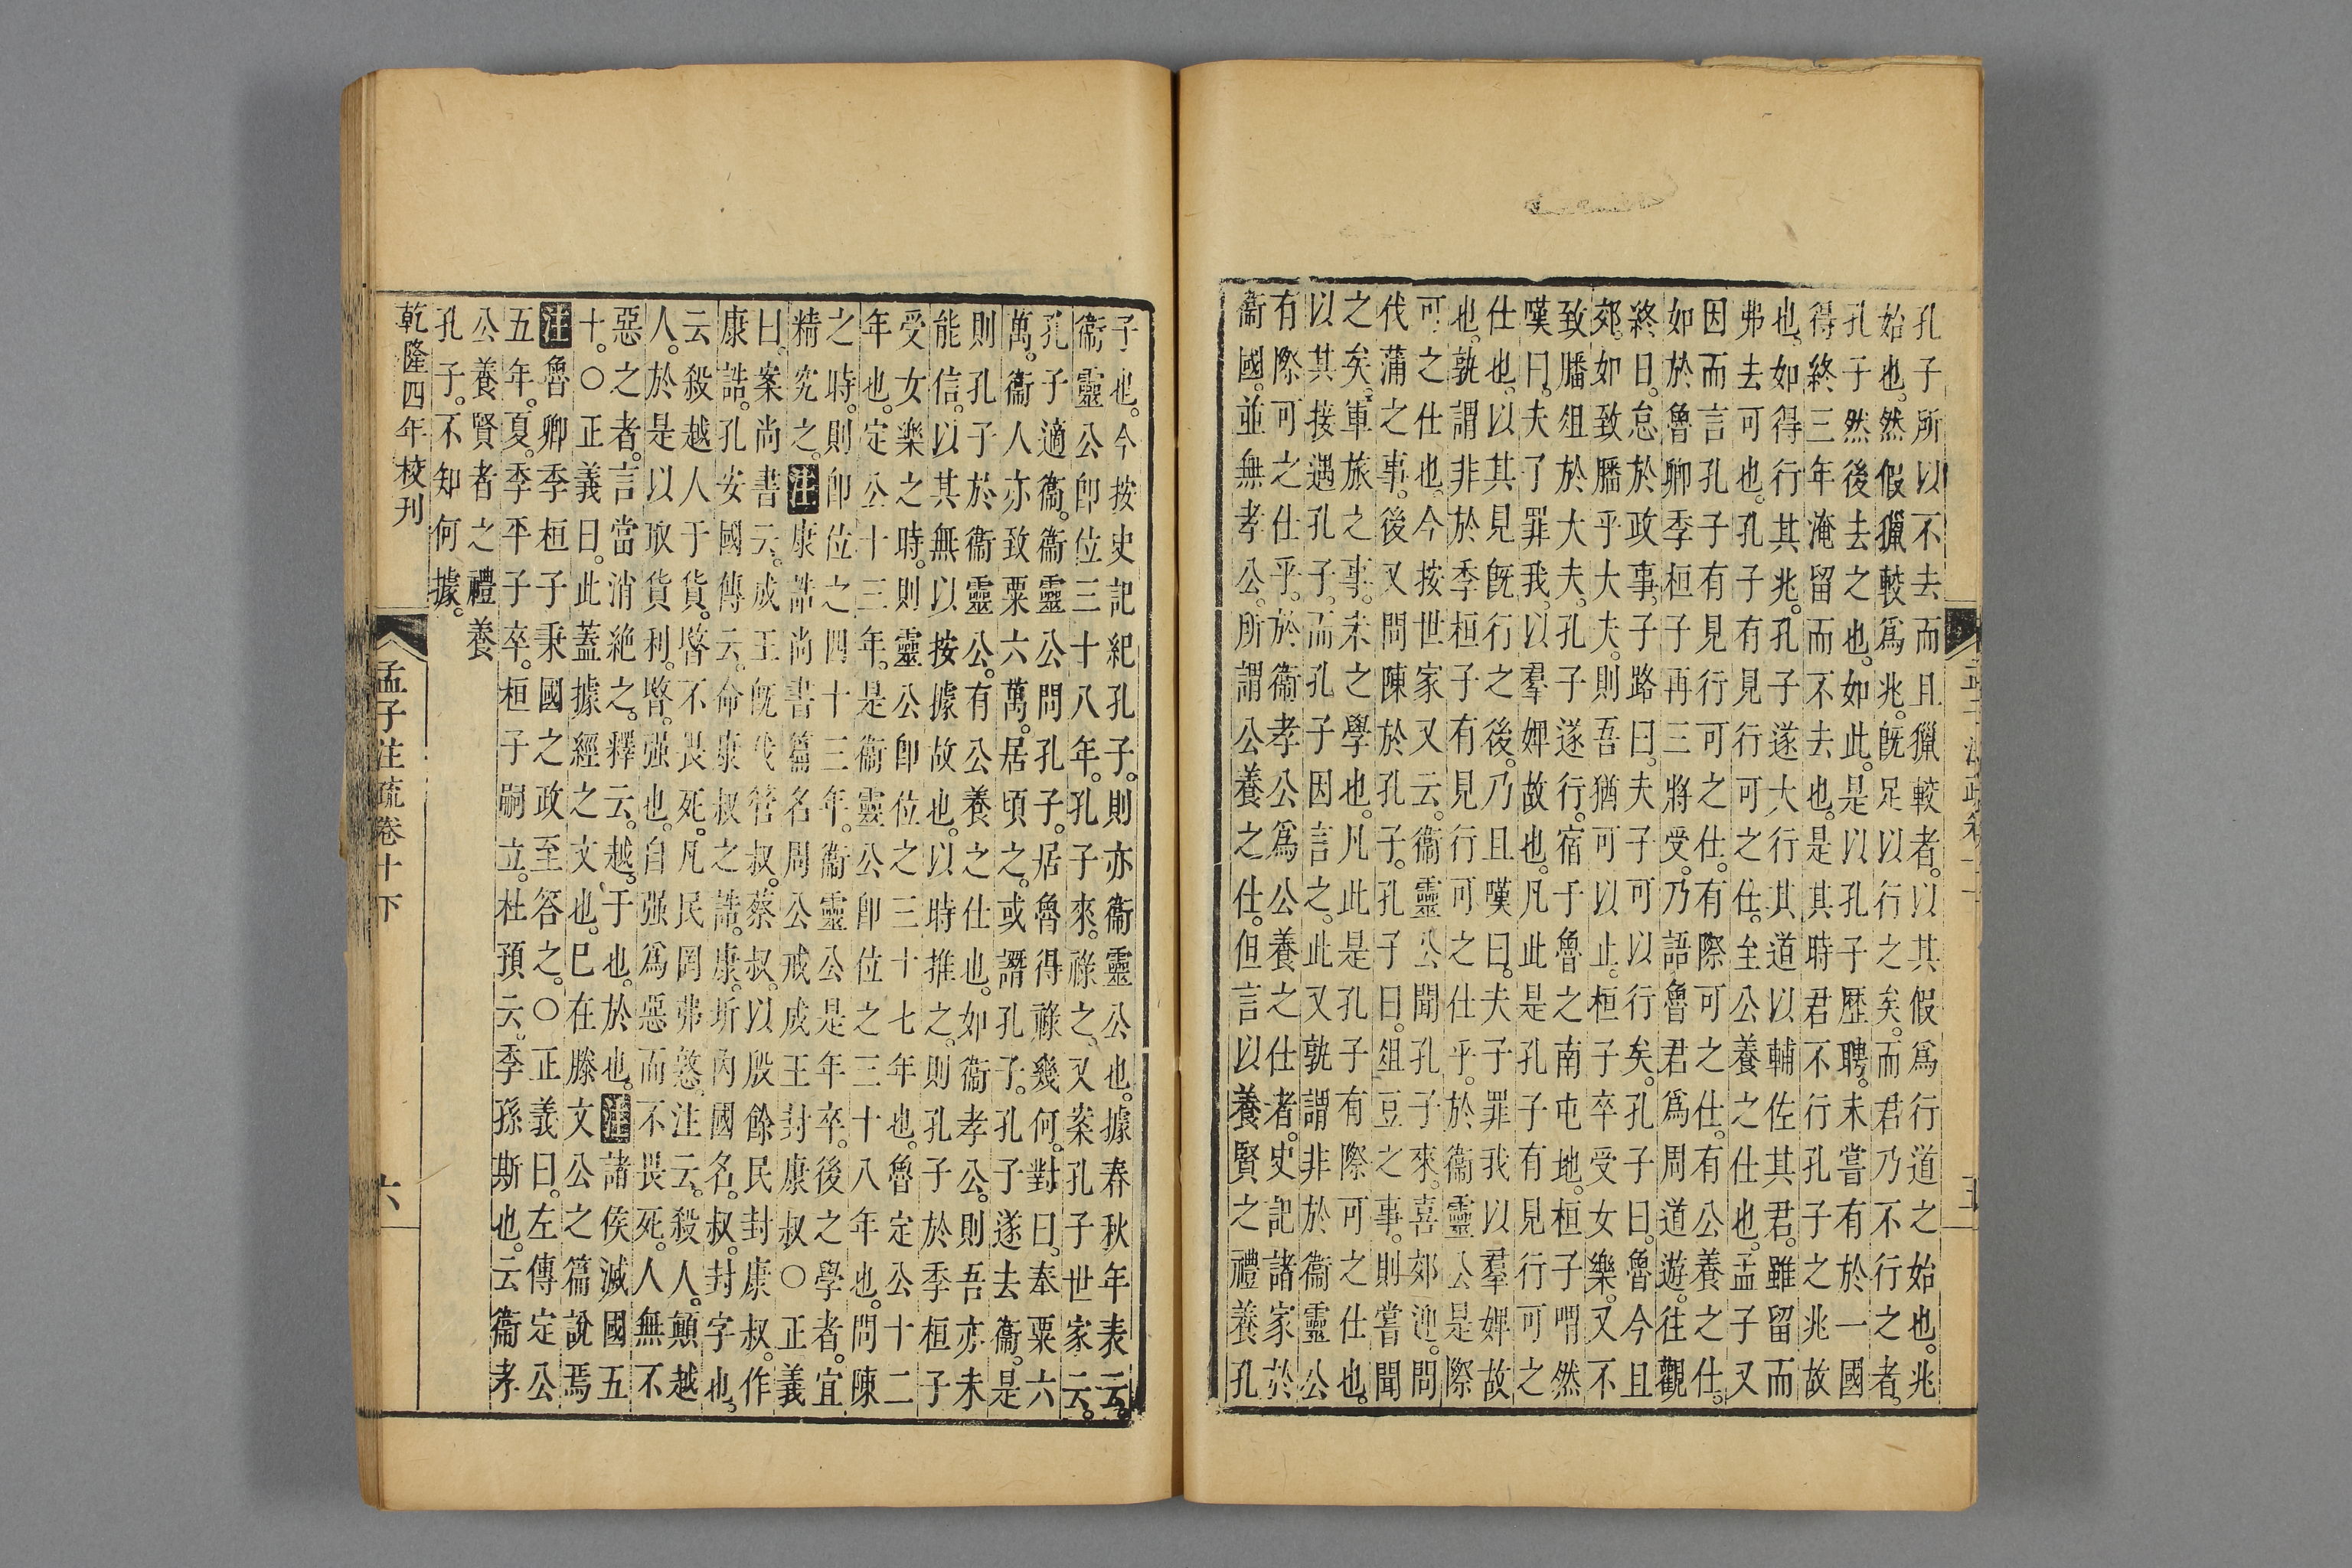 孔子所以不去而且獵較者。以其假爲行道之始也。兆
始也。然假獵較爲兆。旣足以行之矣。而君乃不行之者。
孔子然後去之也。如此。是以孔子歷聘。未嘗有於一國
得終三年淹留而不去也。是其時君不行孔子之兆故
也。如得行其兆。孔子遂大行其道以輔佐其君。雖留而
弗去可也。孔子有見行可之仕。至公養之仕也。孟子又
因而言孔子有見行可之仕。有際可之仕。有公養之仕。
如於魯卿季桓子再三將受。乃語魯君爲周道遊。往觀
終日。怠於政事。子路曰。夫子可以行矣。孔子曰。魯今且
郊。如致膰乎大夫。則吾猶可以止。桓子卒受女樂。又不
致膰俎於大夫。孔子遂行。宿于魯之南屯地。桓子喟然
嘆曰。夫了罪我。以羣婢故也。凡此是孔子有見行可之
仕也。以其見旣行之後。乃且嘆曰。夫子罪我以羣婢故
也。孰謂非於季桓子有見行可之仕乎。於衞靈公是際
可之仕也。今按世家又云。衞靈公聞孔子來。喜郊迎。問
代蒲之事。後又問陳於孔子。孔子曰。俎豆之事。則嘗聞
之矣。軍旅之事。未之學也。凡此是孔子有際可之仕也。
以其接遇孔子。而孔子因言之。此又孰謂非於衞靈公
有際可之仕乎。於衞孝公爲公養之仕者。史記諸家於
衞國。並無孝公。所謂公養之仕。但言以養賢之禮養孔
子也。今按史記紀孔子。則亦衞靈公也。據春秋年表云。
衞靈公卽位三十八年。孔子來。祿之。又案孔子世家云。
孔子適衞。衞靈公問孔子。居魯得祿幾何。對曰。奉粟六
萬。衞人亦致粟六萬。居頃之。或譖孔子。孔子遂去衞。是
則孔子於衞靈公。有公養之仕也。如衞孝公。則吾亦未
能信。以其無以按據故也。以時推之。則孔子於季桓子
受女樂之時。則靈公卽位之三十七年也。魯定公十二
年也。定公十三年。是衞靈公卽位之三十八年也。問陳
之時。則卽位之四十三年。衞靈公是年卒。後之學者。宜
精究之。注康誥尚書篇名周公戒成王封康叔○正義
曰。案尚書云。成王旣伐管叔。蔡叔。以殷餘民封康叔。作
康誥。孔安國傳云。命康叔之誥。康。圻內國名。叔。封字也。
云殺越人于貨。暋不畏死。凡民罔弗憝。注云。殺人。顛越
人。於是以取貨利。暋。强也。自强爲惡而不畏死。人無不
惡之者。言當消絕之。釋云。越。于也。於也。注諸侯滅國五
十。○正義曰。此蓋據經之文也。巳在滕文公之篇說焉
注魯卿季桓子秉國之政至答之。○正義曰。左傳定公
五年。夏。季平子卒。桓子嗣立。杜預云。季孫斯也。云衞孝
公養賢者之禮養
孔子。不知何據。
乾隆四年校刊
孟子注疏卷十下
六